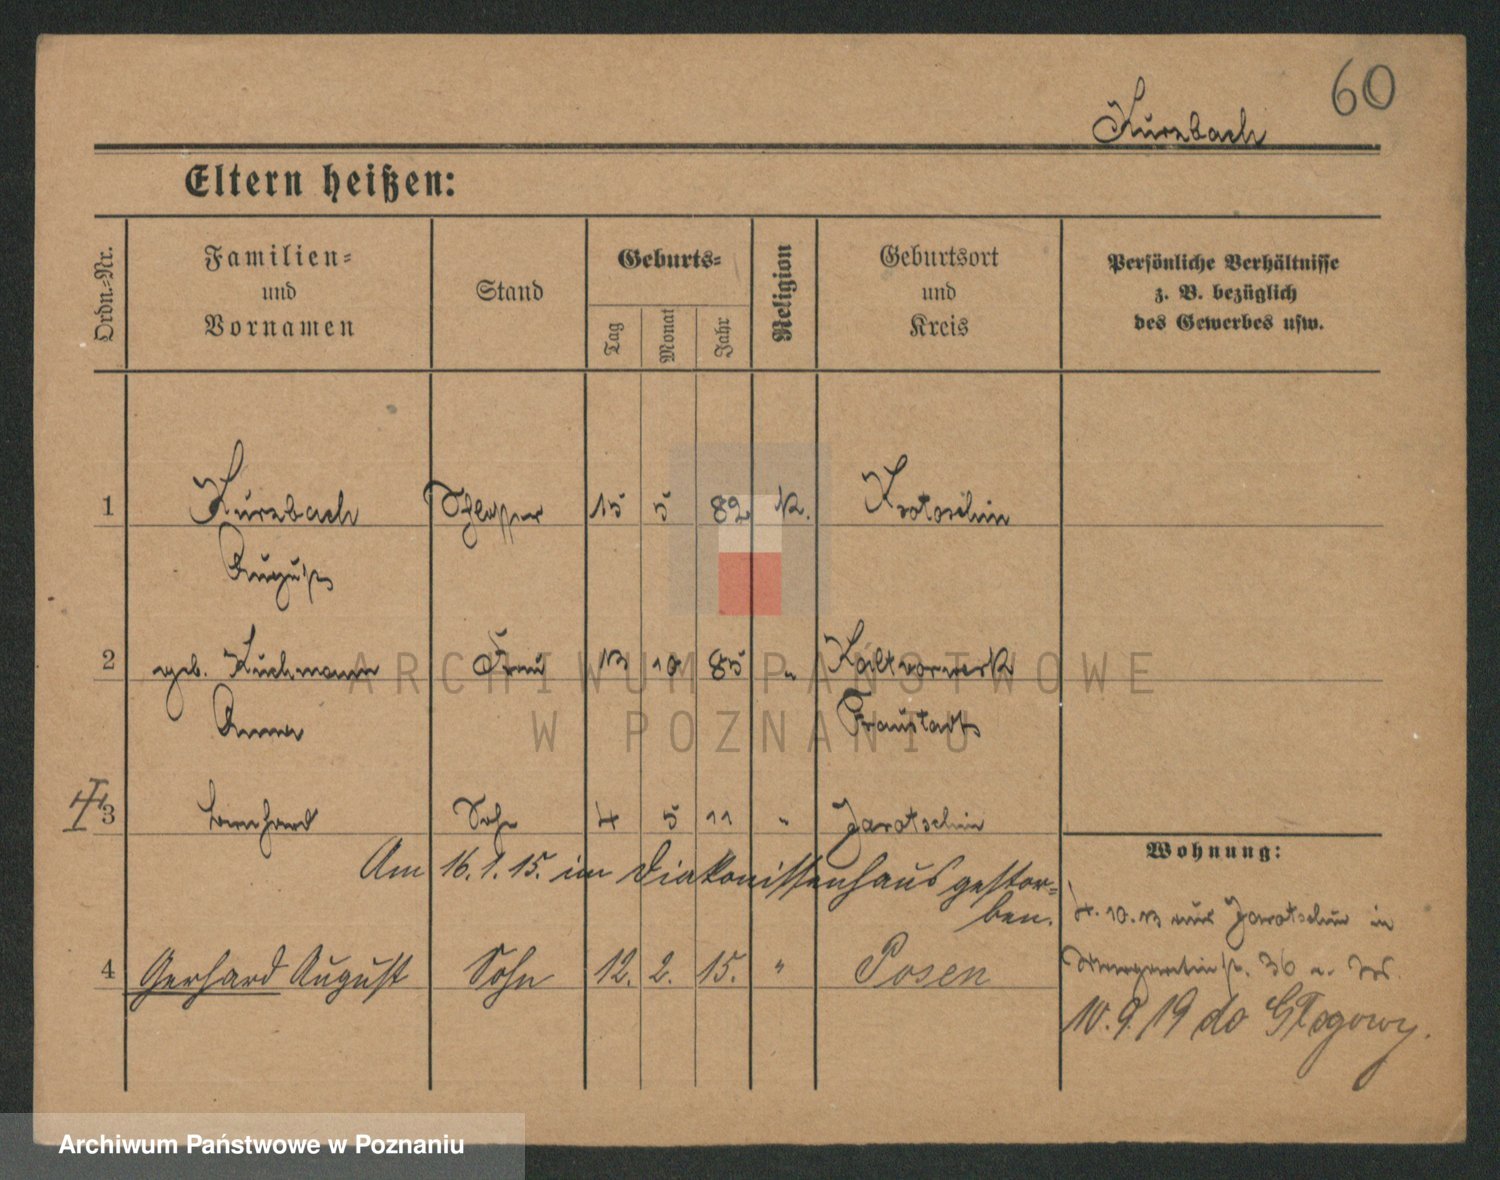 60
Kurzbach
Eltern heißen:
Ordn.-Nr.
Familien-
und
Vornamen
Stand
Geburts-
Tag
Monat
Jahr
Religion
Geburtsort
und
Kreis
Persönliche Verhältnisse
z. B. bezüglich
des Gewerbes usw.
1 Kurzbach Schlosser 15 5 82 K. Krotoschin
August
2 geb. Kuchmann Frau 13 10 85 " Kaltvorwerk
Anna Fraustadt
3 Bernhard Sohn 4 5 11 " Jarotschin
Am 16.1.15. im Diakonissenhaus gestor-
ben.
Wohnung:
4. 10. 13 aus Jarotschin in
4 Gerhard August Sohn 12. 2. 15. " Posen
36
10.9.19 do Głogowy.
ARCHIWUM PAŃSTWOWE
W POZNANIU
Archiwum Państwowe w Poznaniu